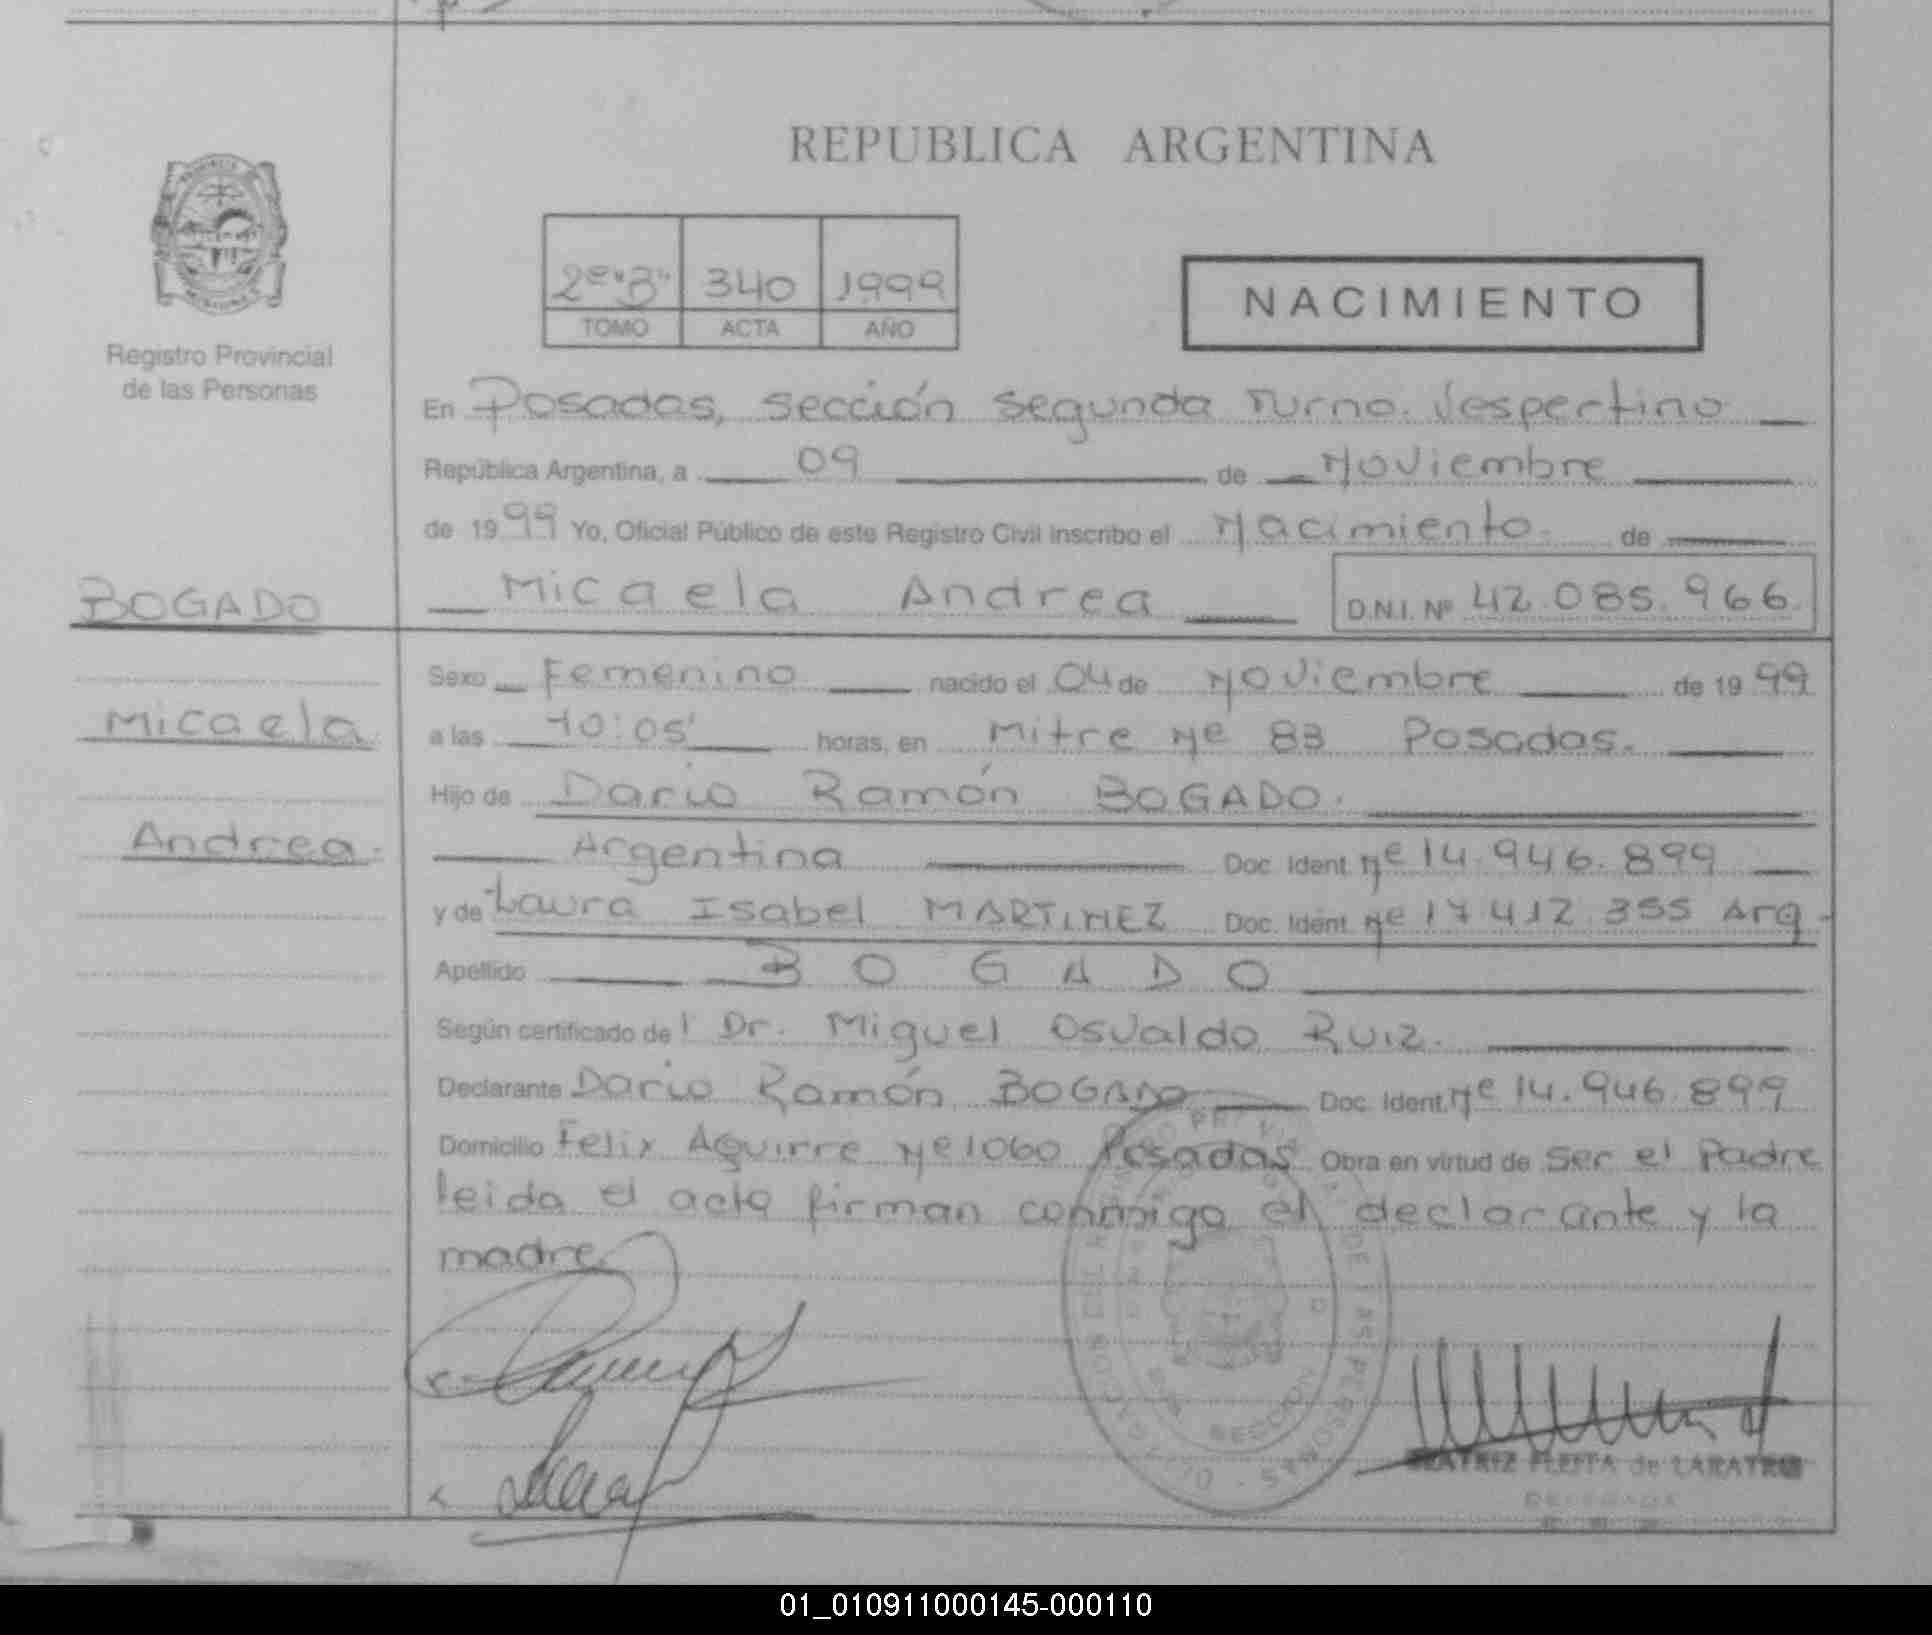 REPUBLICA ARGENTINA
2º "B" 340 1999
TOMO ACTA AÑO
NACIMIENTO
Registro Provincial
de las Personas
En Posadas, sección segunda Turno Vespertino
República Argentina, a 09 de Noviembre
de 1999 Yo, Oficial Público de este Registro Civil inscribo el Nacimiento de
BOGADO
Micaela Andrea D.N.I. Nº 42.085.966
Sexo Femenino nacido el 04 de Noviembre de 1999
Micaela
a las 10:05' horas, en Mitre Nº 83 Posadas.
Hijo de Dario Ramón BOGADO.
Andrea.
Argentina Doc. Ident. Nº 14.946.899
y de Laura Isabel MARTINEZ Doc. Ident. Nº 17.412.355 Arg.
Apellido BOGADO
Según certificado del Dr. Miguel Osvaldo Ruiz.
Declarante Dario Ramón BOGADO Doc. Ident. Nº 14.946.899
Domicilio Felix Aguirre Nº 1060 Posadas Obra en virtud de ser el Padre
leida el acta firman conmigo el declarante y la
madre
SECCION
BEATRIZ FLEITA de LABATRU
DELEGADA
01_010911000145-000110